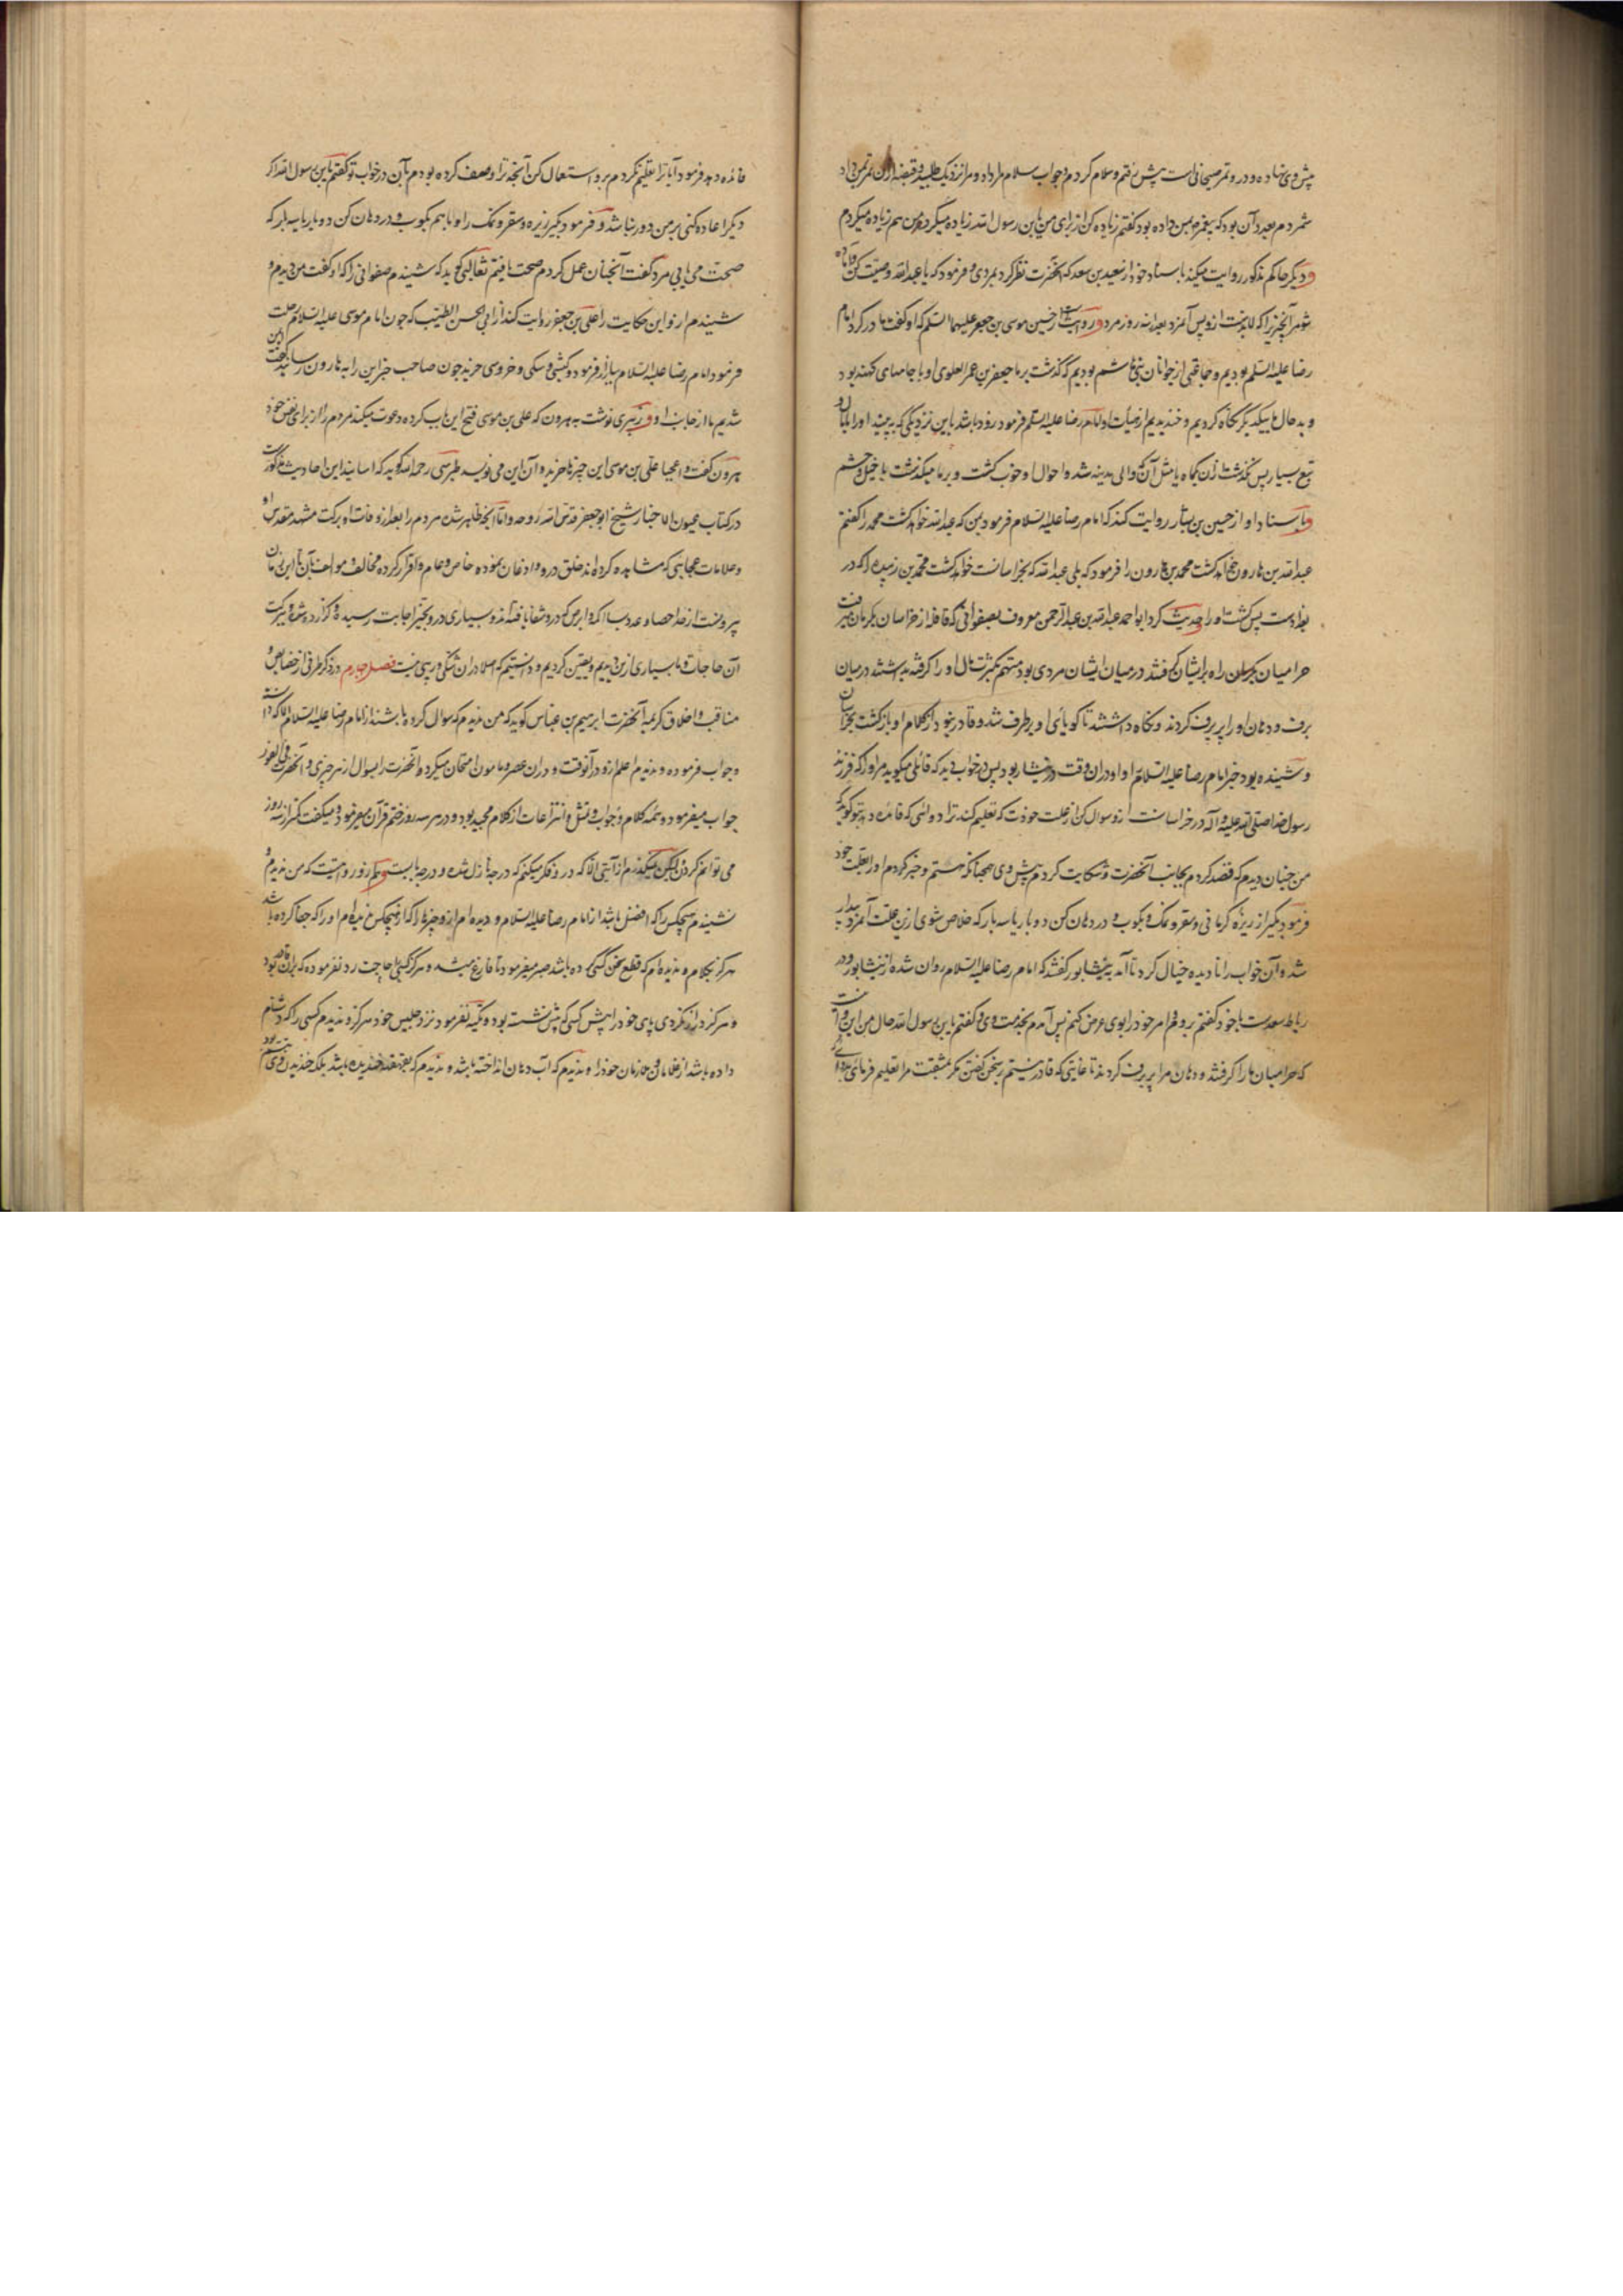 پیش وی نهاده و در و تمر صیحانی است پیش رفتم و سلام کردم و جواب سلام باز داد و مرا نزدیک طلبید و قبضهٔ از آن تمر بمن داد
شمردم بعدد آن بود که پیغمبر بمن داده بود گفتم زیاده کن از برای من یابن رسول الله اگر رسول الله زیاده میکرد من هم زیاده میکردم
و دیگر حاکم مذکور روایت میکند باسناد خود از سعید بن سعد که آنحضرت نظر کرد بمردی و فرمود که یا عبدالله وصیت کن و آماده
شو مر آنچیز را که لابدست ازو پس آن مرد بعد از سه روز مرد و روایت از حسین بن موسی بن جعفر علیهما السلم که او گفت ما در گرد امام
رضا علیه السلم بودیم و جماعتی از جوانان بنی هاشم بودیم که گذشت بر ما جعفر بن عمر العلوی و او با جامهای کهنه بود
و بدحال ما بیکدیگر نگاه کردیم و خندیدیم از هیأت او امام رضا علیه السلم فرمود زود باشد باین نزدیکی که ببینید او را با مال و
تبع بسیار پس نگذشت ازن یکماه یا مثل آن که والی مدینه شد و احوال او خوب گشت و بر ما میگذشت با خیل و حشم
و باسناد او از حسین بن بشار روایت کند که امام رضا علیه السلام فرمود بمن که عبدالله خواهد کشت محمد را گفتم
عبدالله بن هارون خواهد کشت محمد بن هارون را فرمود که بلی عبدالله که بخراسانست خواهد کشت محمد بن زبیده را که در
بغدادست پس کشت او را و حدیث کرد ابو احمد عبدالله بن عبدالرحمن معروف بصفوانی که قافله از خراسان بکرمان میرفت
حرامیان بکرمان راه بر ایشان گرفتند در میان ایشان مردی بود متهم بکثرت مال او را گرفته بداشتند در میان
برف و دهان او را پر برف کردند و نگاه داشتند تا گویائی او برطرف شد و قادر نبود از کلام او بازگشت بخراسان
و شنیده بود خبر امام رضا علیه السلام را و او در آن وقت در نیشابور بود پس در خواب دید که قائلی میگوید مر او را که فرزند
رسول خدا صلی الله علیه و آله در خراسانست ازو سوال کن از علت خود که تعلیم کند ترا دوائی که فائده دهد بتو گوید که
من چنان دیدم که قصد کردم بجانب آنحضرت و شکایت کردم پیش وی همچنانکه هستم و خبر کردم او را بعلت خود
فرمود بگیر از زیره کرمانی و سعتر و نمک و بکوب و در دهان کن دو بار یا سه بار که خلاص شوی ازین علت آن مرد بیدار
شد و آن خواب را نادیده خیال کرد تا آمد به نیشابور گفتند که امام رضا علیه السلام روان شده از نیشابور و در
رباط سعدست با خود گفتم بروم و امر خود را بوی عرض کنم پس آمدم بخدمت وی و گفتم یابن رسول الله حال من این و آنست
که حرامیان ما را گرفتند و دهان مرا پر برف کردند تا غایتی که قادر نیستم بر سخن گفتن مگر بمشقت مرا تعلیم فرمای دوائی که
فائده دهد فرمود آیا ترا تعلیم نکردم برو استعمال کن آنچه ترا وصف کرده بودم بآن در خواب تو گفتم یابن رسول الله اگر
دیگر اعاده کنی بر من دور نباشد و فرمود بگیر زیره و سعتر و نمک را و با هم بکوب و در دهان کن دو بار یا سه بار که
صحت می یابی مرد گفت آنچنان عمل کردم صحت یافتم ثعالبی گوید که شنیدم صفوانی را که او گفت من دیدم و
شنیدم ازو این حکایت را علی بن جعفر روایت کند از ابی الحسن الطیب که چون امام موسی علیه السلام رحلت
فرمود امام رضا علیه السلام ببازار فرمود و کبشی و سگی و خروسی خرید چون صاحب خبر این را به هارون رسانید گفت ایمن
شدیم ما از جانب او و زبیری نوشت به هرون که علی بن موسی فتح این باب کرده و دعوت میکند مردم را از برای نفس خود
هرون گفت واعجبا علی بن موسی این چیزها خریده و آن این می نویسد طبرسی رحمه الله گوید که اسانید این احادیث مذکورست
در کتاب عیون الاخبار شیخ ابو جعفر قدس الله روحه و اما آنچه ظاهر شد مردم را بعد از وفات او برکت مشهد مقدس او
و علامات و عجایبی که مشاهده کرده اند خلق درو و اذعان نموده خاص و عام و اقرار کرده مخالف و موالف بآن تا این زمان
بیرونست از حد احصا و عدد بسا اکمه و ابرص که درو شفا یافته اند و بسیاری درو بحیز اجابت رسیده و گزارده شد ببرکت
آن حاجات و ما بسیاری ازین دیدیم و یقین کردیم و دانستیم که اصلا در آن شکی و ریبی نیست فصل چهارم در ذکر طرفی از خصایص و
مناقب و اخلاق کریمه آنحضرت ابرهیم بن عباس گوید که من ندیدم که سوال کرده باشند از امام رضا علیه السلام الا که دانسته
و جواب فرموده و ندیدم اعلم ازو در آنوقت و در آن عصر و مامون امتحان میکرد آنحضرت را بسوال از هر چیزی و آنحضرت فی الفور
جواب میفرمود و همه کلام و جواب و تمثل و انتزاعات از کلام مجید بود و در هر سه روز ختم قرآن میفرمود و میگفت کمتر از سه روز
می توانم کردن لیکن نمیگذرم از آیتی الا که در و فکر میکنم که در چه نازل شده و در چه بابست و هم زو روایتست که من ندیدم و
نشنیدم هیچکس را که افضل باشد از امام رضا علیه السلام و دیده ام ازو چیزها که از هیچکس ندیده ام او را که جفا کرده باشد
هرگز بکلام و ندیده ام که قطع سخن کسی کرده باشد صبر میفرمود تا فارغ میشد و هرگز کسی را حاجت رد نفرموده که بران قادر بود
و هرگز دراز نکردی پای خود را پیش کسی که پیش نشسته بود و تکیه نفرمود نزد جلیس خود هرگز و ندیدم کسی را که دشنام
داده باشد از غلامان و خادمان خود را و ندیدم که آب دهان انداخته باشد و ندیدم که بقهقهه خندیده باشد بلکه خندیدن وی تبسم بود